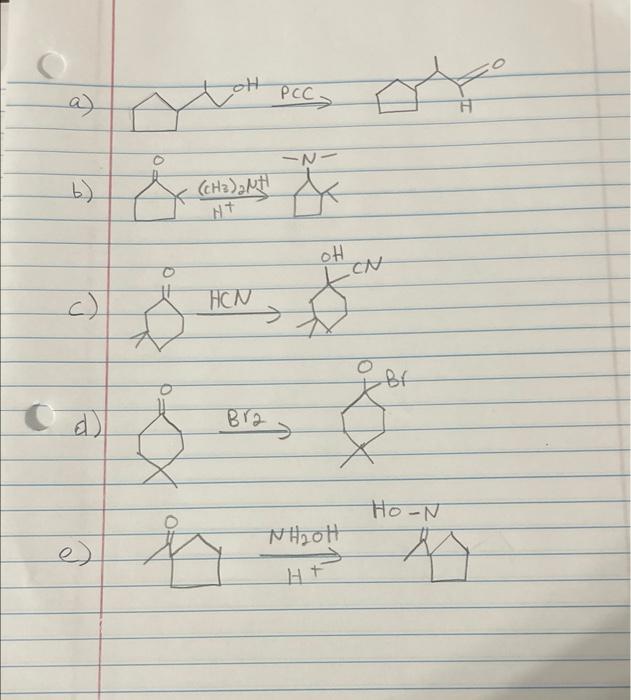 a) OH PCC O H
b) O (CH3)2NH H+ -N-
c) O HCN OH CN
d) O Br2 O Br
e) O NH2OH H+ HO-N